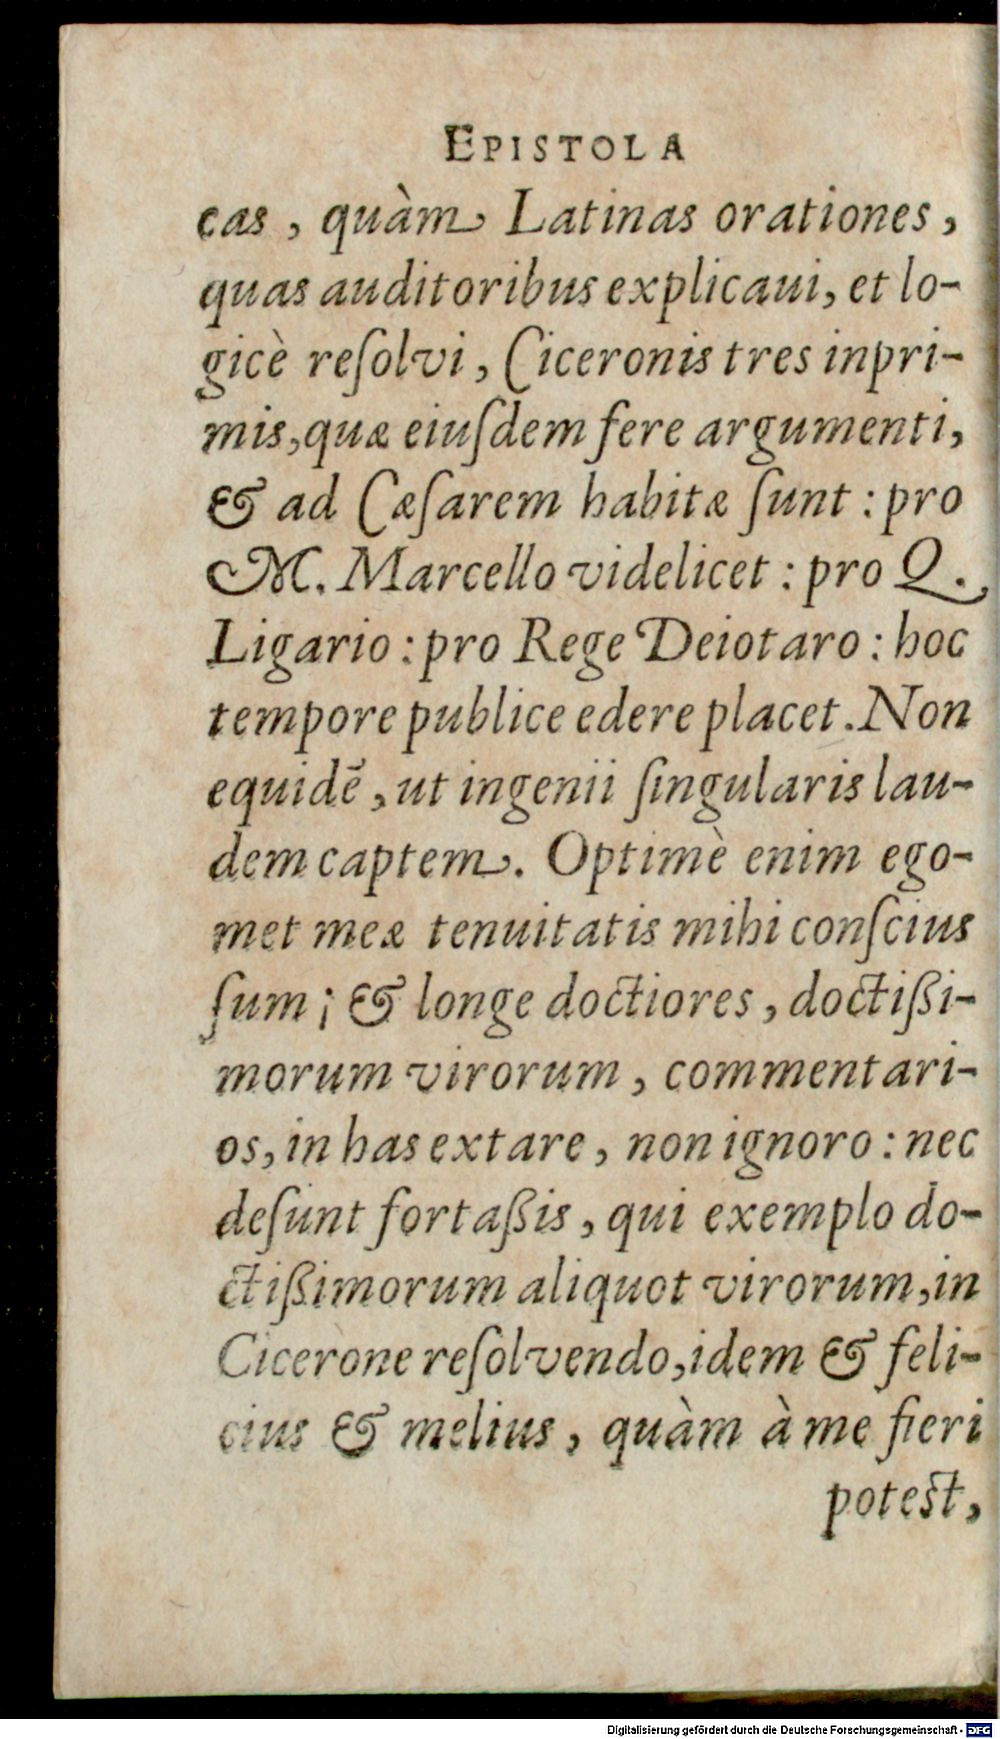 EPISTOLA
cas, quàm Latinas orationes,
quas auditoribus explicaui, et lo-
gicè reſolvi, Ciceronis tres inpri-
mis, quæ eiuſdem fere argumenti,
& ad Cæſarem habitæ ſunt: pro
M. Marcello videlicet: pro Q.
Ligario: pro Rege Deiotaro: hoc
tempore publice edere placet. Non
equidē, ut ingenii ſingularis lau-
dem captem. Optimè enim ego-
met meæ tenuitatis mihi conſcius
ſum; & longe doctiores, doctißi-
morum virorum, commentari-
os, in has extare, non ignoro: nec
deſunt fortaßis, qui exemplo do-
ctißimorum aliquot virorum, in
Cicerone reſolvendo, idem & feli-
cius & melius, quàm à me fieri
poteſt,
Digitalisierung gefördert durch die Deutsche Forschungsgemeinschaft - DFG